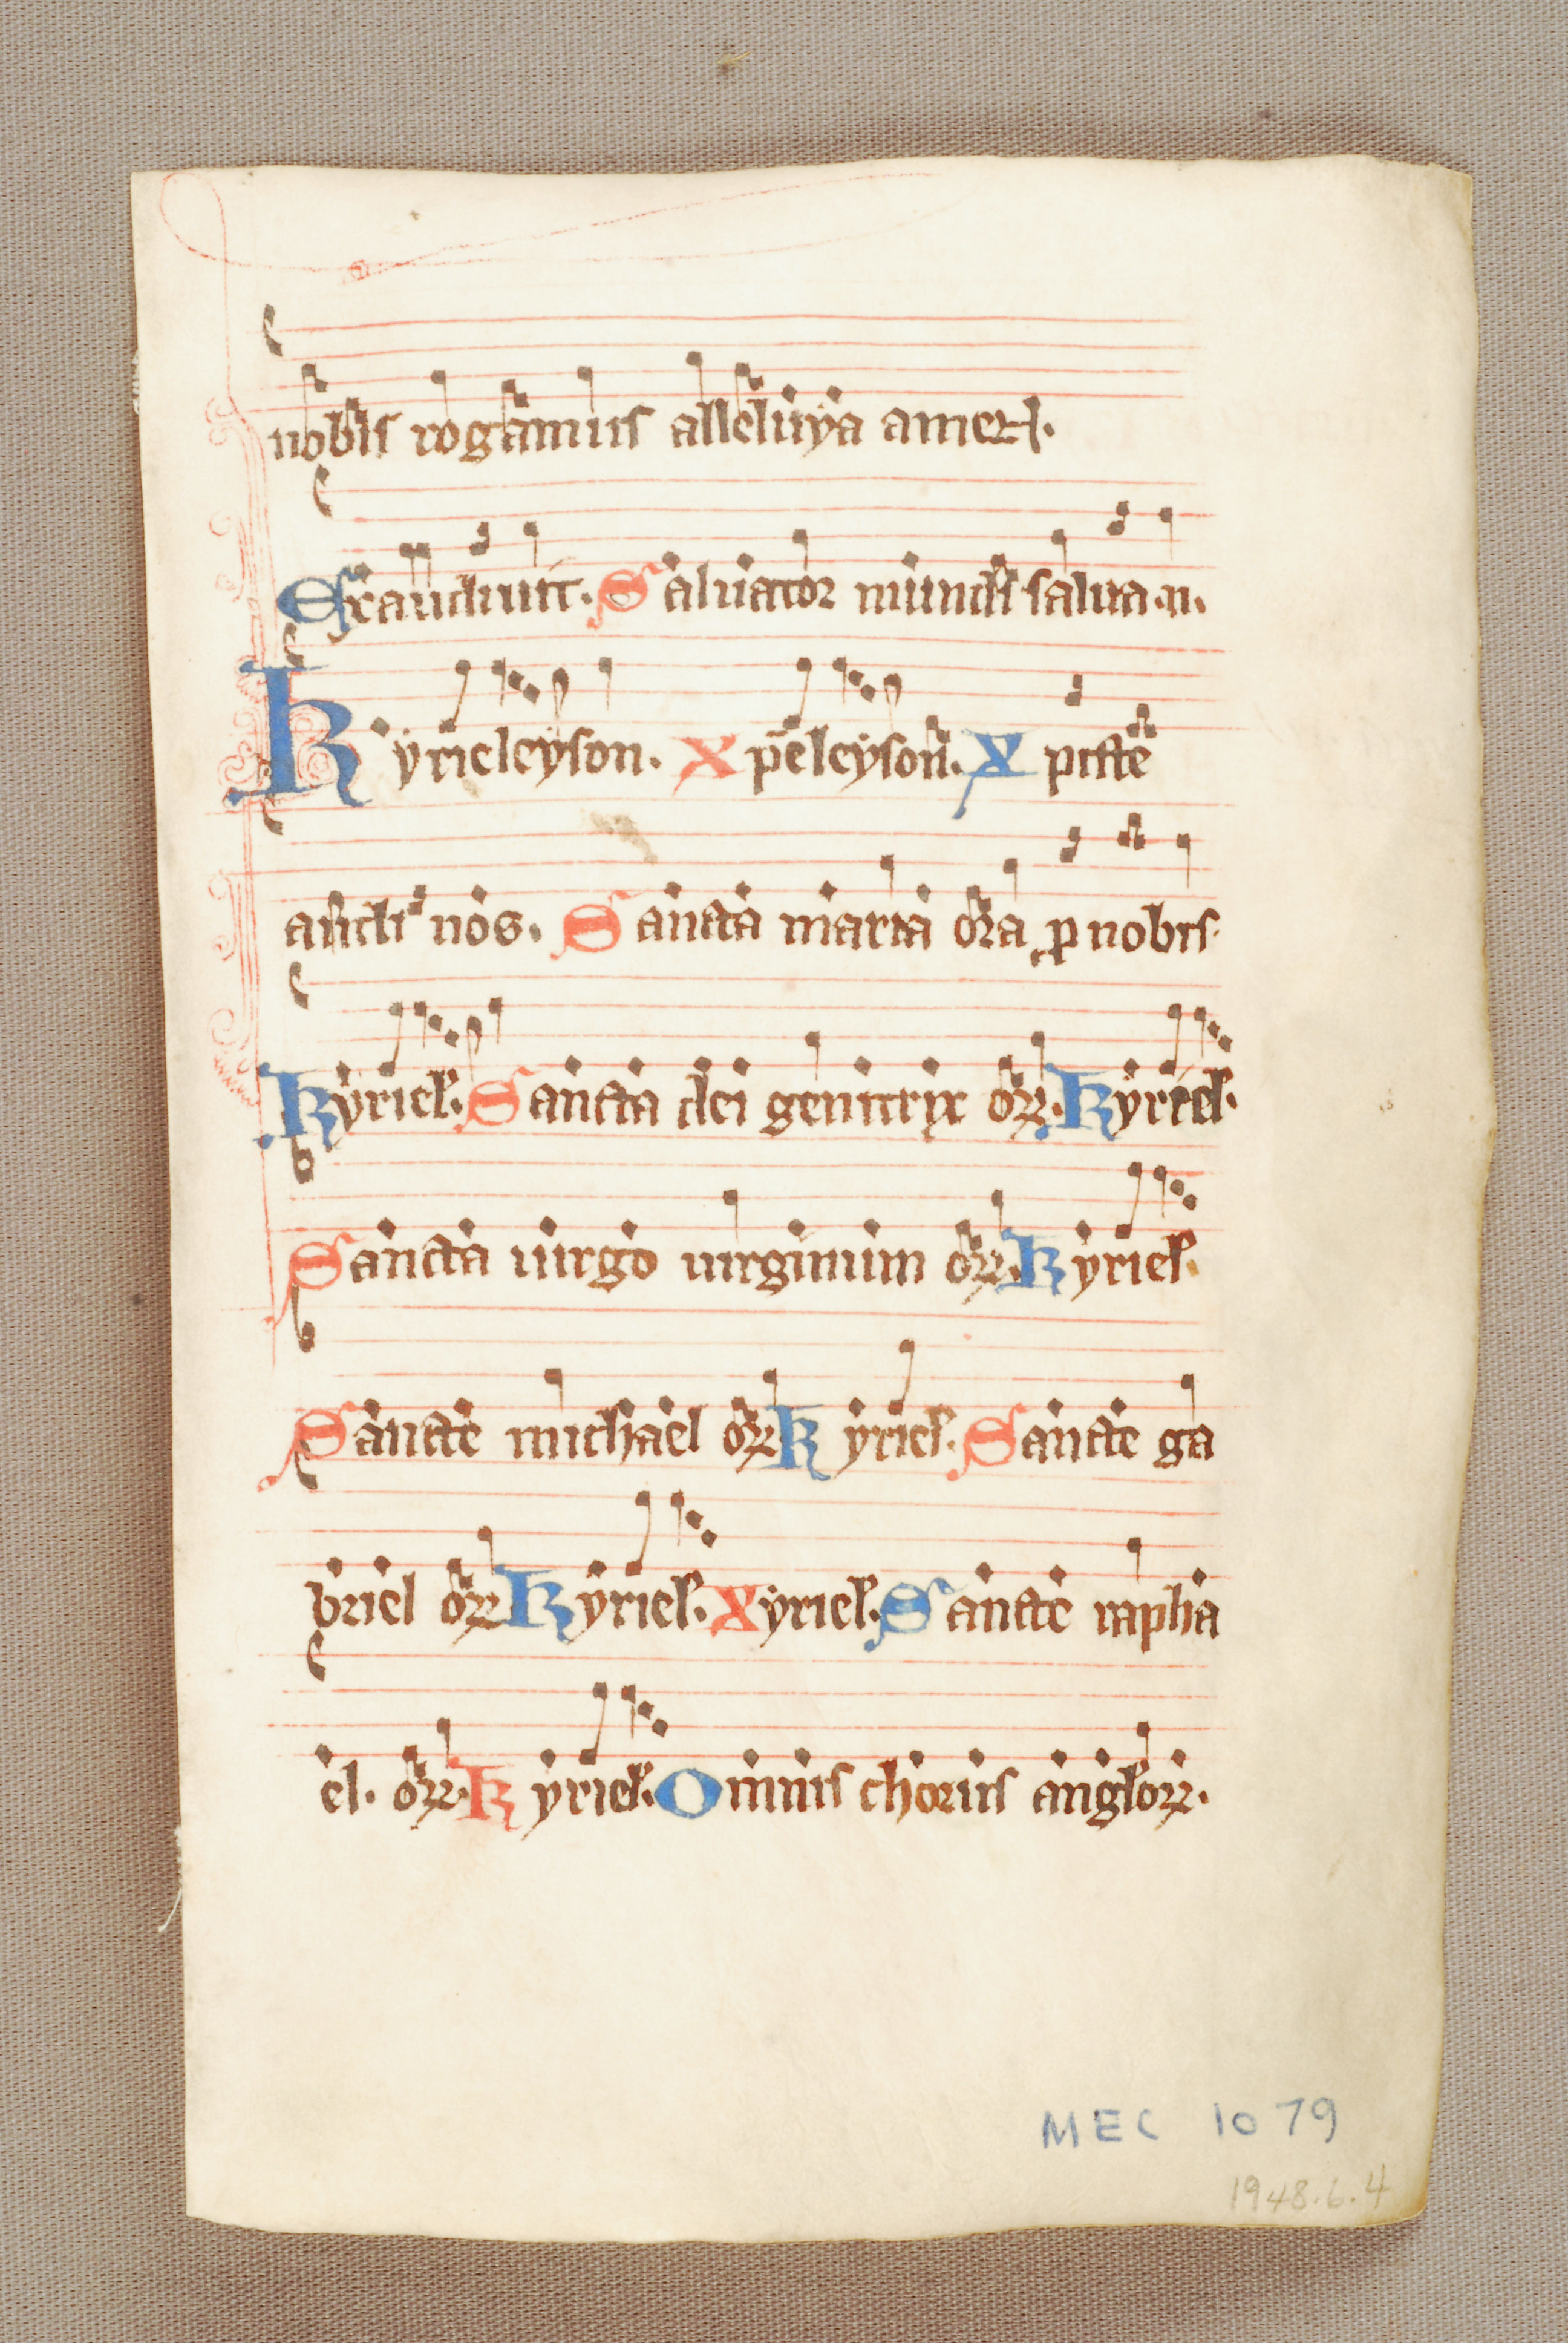 nobis rogamus alleluya amen.
Exaudiuit. Saluator mundi salua .n.
Kyrieleyson. Xpeleyson. Xpiste
audi nos. Sancta maria ora ꝓ nobis.
Kyriel. Sancta dei genitrix oꝝ. Kyriel.
Sancta uirgo uirginum oꝝ. Kyriel.
Sancte michael oꝝ Kyriel. Sancte ga
briel oꝝ Kyriel. Xyriel. Sancte rapha
el. oꝝ. Kyriel. Omnis chorus anglorꝝ.
MEC 1079
1948.6.4